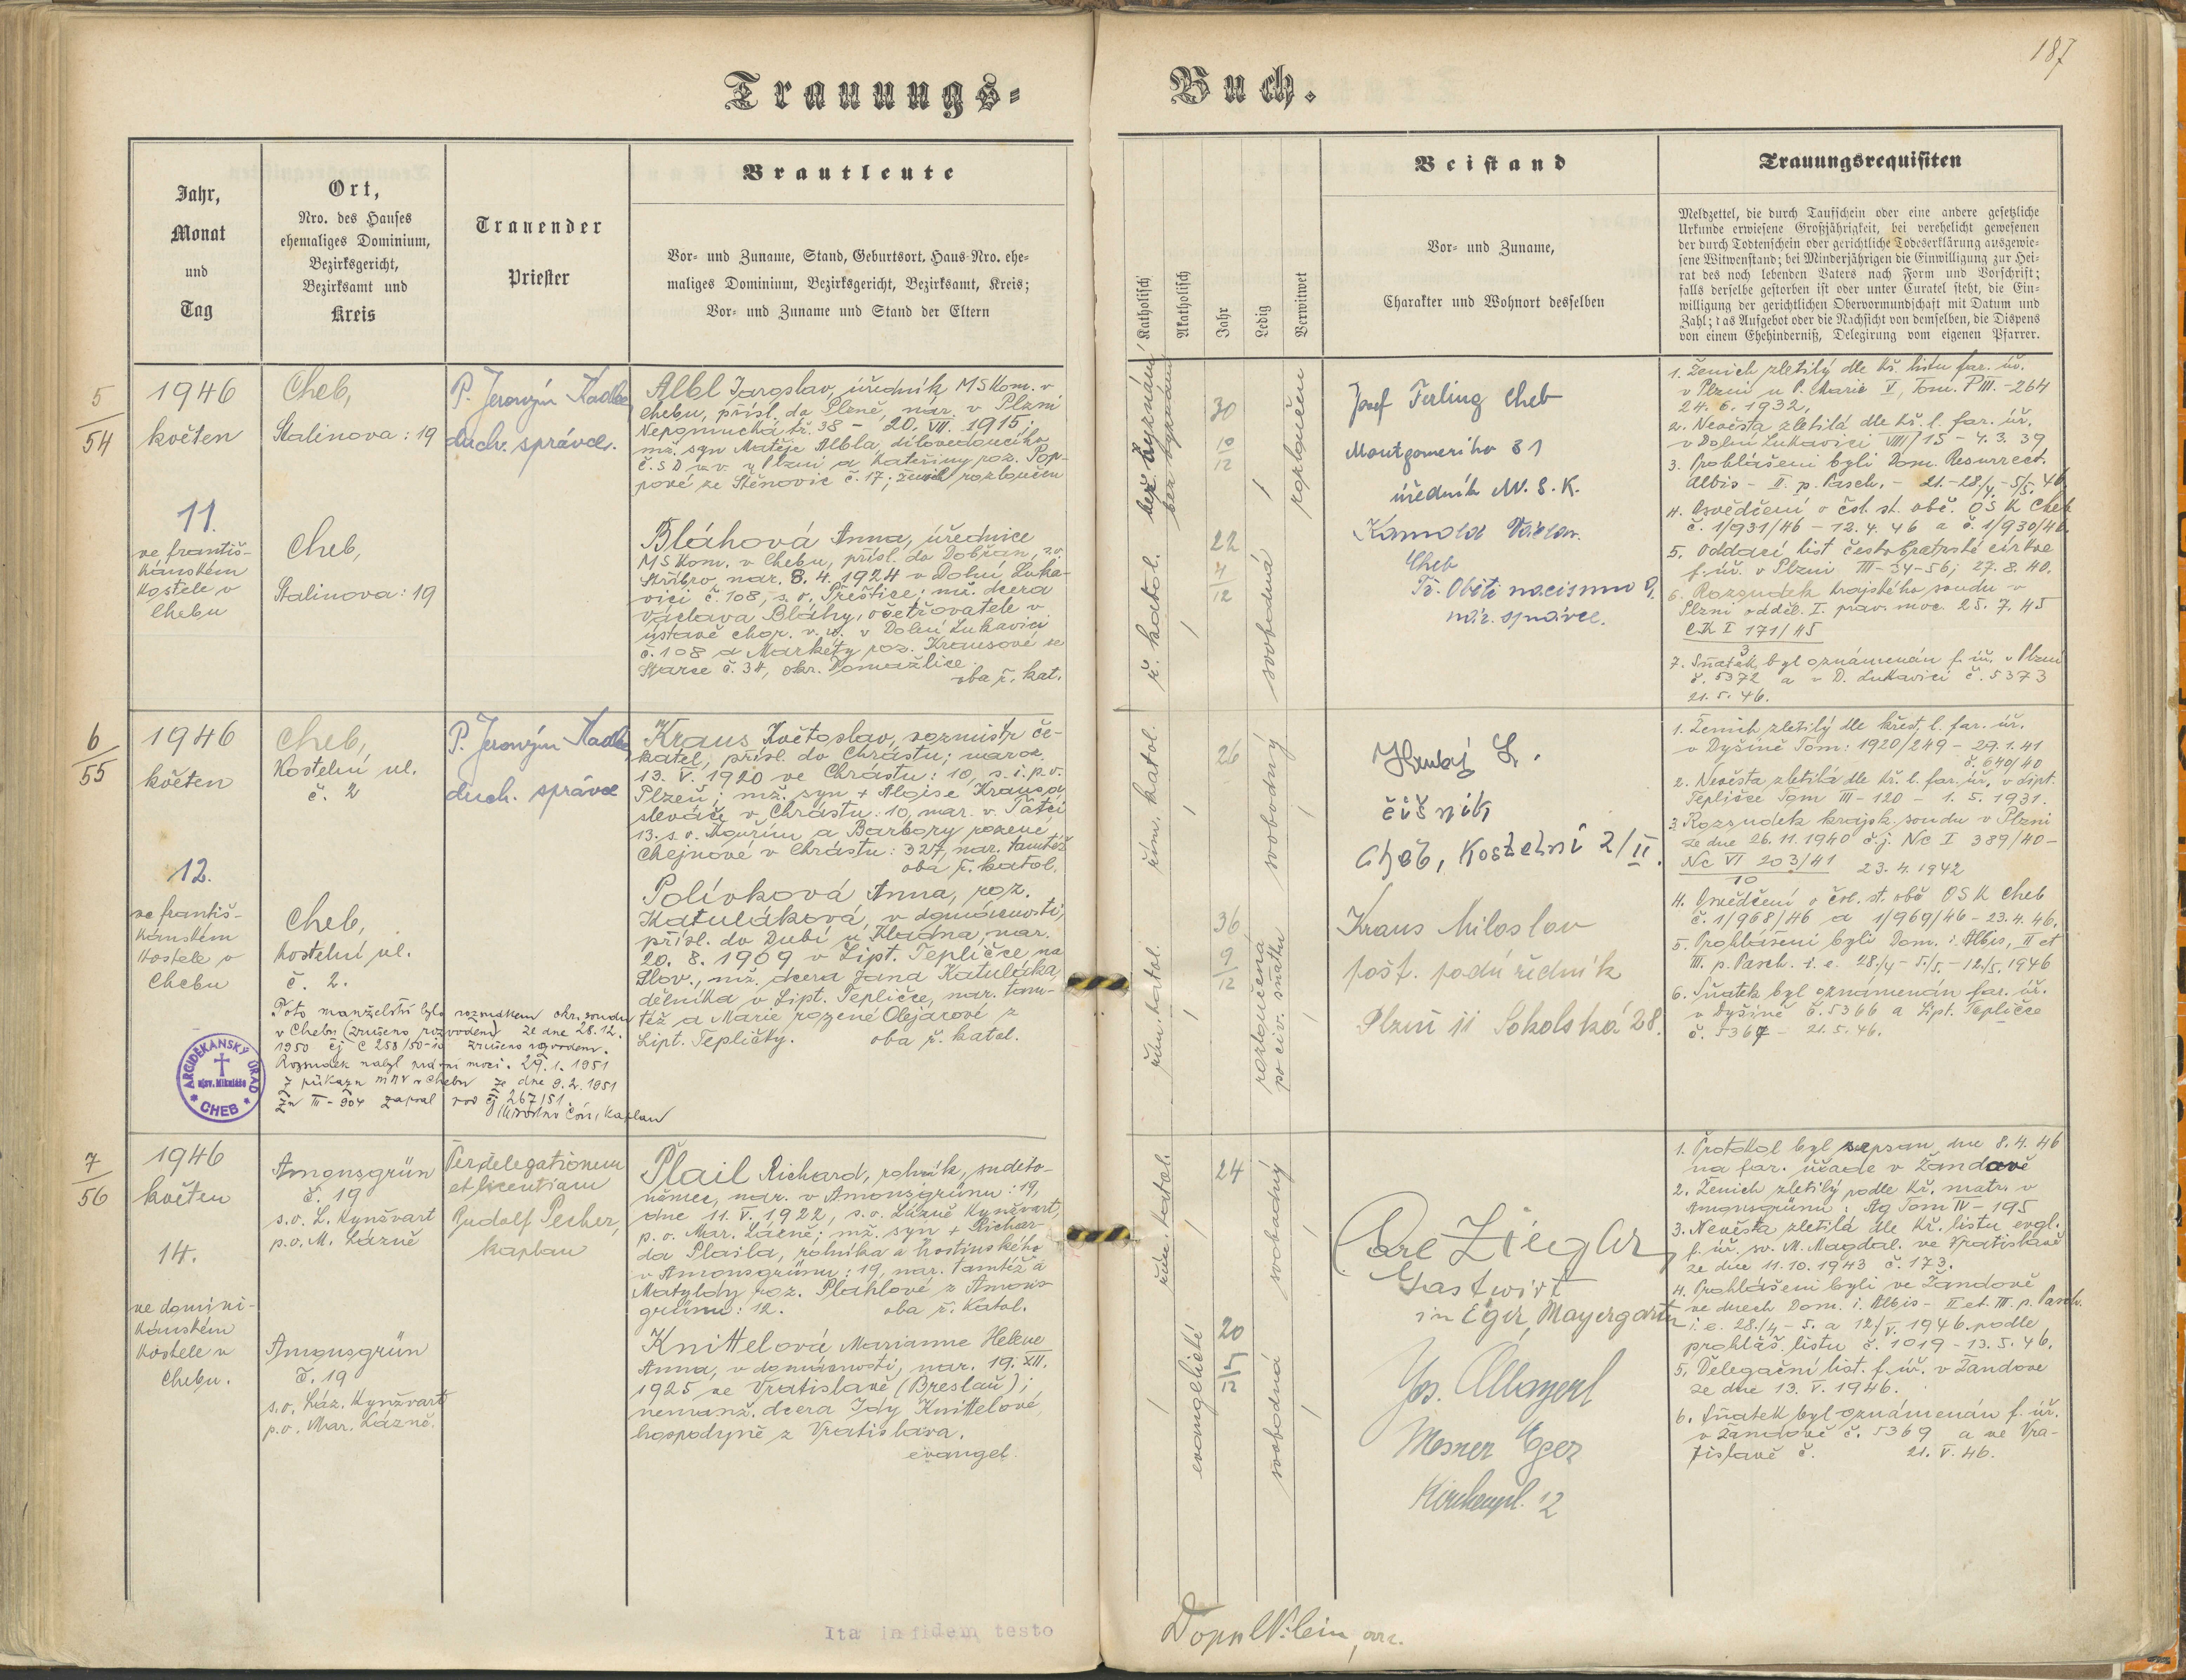 187
Trauungs=
Buch.
Jahr,
Monat
und
Tag
Ort,
Nro. des Hauses
ehemaliges Dominium,
Bezirksgericht,
Bezirksamt und
Kreis
Trauender
Priester
Brautleute
Vor- und Zuname, Stand, Geburtsort, Haus-Nro. ehe=
maliges Dominium, Bezirksgericht, Bezirksamt, Kreis;
Vor- und Zuname und Stand der Eltern
Katholisch
Akatholisch
Jahr
Ledig
Verwitwet
Beistand
Vor- und Zuname,
Charakter und Wohnort desselben
Trauungsrequisiten
Meldzettel, die durch Taufschein oder eine andere gesetzliche
Urkunde erwiesene Großjährigkeit, bei verehelicht gewesenen
der durch Todtenschein oder gerichtliche Todeserklärung ausgewie=
sene Witwenstand; bei Minderjährigen die Einwilligung zur Hei=
rat des noch lebenden Vaters nach Form und Vorschrift;
falls derselbe gestorben ist oder unter Curatel steht, die Ein=
willigung der gerichtlichen Obervormundschaft mit Datum und
Zahl; das Aufgebot oder die Nachsicht von demselben, die Dispens
von einem Ehehinderniß, Delegirung vom eigenen Pfarrer.
5
54
1946
květen
11.
ve františ-
kánském
kostele v
Chebu
Cheb,
Stalinova: 19
Cheb,
Stalinova: 19
P. Jeroným Kadlec
duch. správce.
Albl Jaroslav, úředník MSKom. v
Chebu, přísl. do Plzně, nar. v Plzni
Nepomucká tř. 38 - 20. VII. 1915;
mž. syn Matěje Albla, dílovedoucího
č.S D v.v. v Plzni a Kateřiny roz. Pop-
pové ze Stěnovic č. 17; ženich rozloučen
Bláhová Anna, úřednice
MSKom. v Chebu, přísl. do Dobřan, s.o.
Stříbro, nar. 8. 4. 1924 v Dolní Luka-
vici č. 108, s. o. Přeštice; mž. dcera
Václava Bláhy, ošetřovatele v
ústavě chor. v. v. v Dolní Lukavici
č. 108 a Markéty roz. Krausové ze
Starce č. 34, okr. Domažlice.
oba ř. kat.
bez vyznání
bez vyznání
30
10
12
rozloučen
ř. katol.
22
4
12
svobodná
Josef Ferling Cheb
Montgomeriho 31
úředník M.S.K.
Václav.
Cheb
Tř. Obětí nacismu 9.
nár. správce.
1. Ženich zletilý dle kř. listu far. úř.
v Plzni u P. Marie V, Tom. P III. - 264
24. 6. 1932,
2. Nevěsta zletilá dle kř. l. far. úř.
v Dolní Lukavici VIII/15 - 4. 3. 39
3. Prohlášeni byli Dom. Resurrect.
Albis - II. p. Pasch. - 21. - 28./4. - 5/5. 46
4. Osvědčení o čsl. st. obč. OSK Cheb
č. 1/931/46 - 12. 4. 46 a č. 1/930/46.
5. Oddací list českobratrské církve
f. úř. v Plzni III-34-56; 27. 8. 40.
6. Rozsudek krajského soudu v
Plzni odděl. I. práv. moc. 25. 7. 45
CK I 171/45
3
7. Sňatek byl oznámenán f. úř. v Plzni
č. 5372 a v D. Lukavici č. 5373
21. 5. 46.
6
55
1946
květen
12.
ve františ-
kánském
kostele v
Chebu
Cheb,
Kostelní ul.
č. 2
Cheb,
Kostelní ul.
č. 2.
P. Jeroným Kadlec
duch. správce
Kraus Květoslav, rozmistr če-
katel, přísl. do Chrástu; naroz.
13. V. 1920 ve Chrástu: 10, s. i. p. o.
Plzeň; mž. syn + Aloise Krausa,
slevače v Chrástu: 10, nar. v Tatci
13. s. o. Kouřim a Barbory rozené
Chejnové v Chrástu: 327, nar. tamtéž
oba ř. katol.
Polívková Anna, roz.
Katuláková, v domácnosti,
přísl. do Dubí u Kladna, nar.
20. 8. 1909 v Lipt. Tepličce, na
Slov., mž. dcera Jana Katuláka,
dělníka v Lipt. Tepličce, nar. tam-
též a Marie rozené Olejarové z
Lipt. Tepličky. oba ř. katol.
Toto manželství bylo rozsudkem okr. soudu
v Chebu (zrušeno rozvodem) ze dne 28. 12.
1950 čj C 258/50-10 zrušeno rozvodem.
Rozsudek nabyl právní moci. 29. 1. 1951
Z příkazu MNV v Chebu ze dne 9. 2. 1951
Zn III-904 zapsal pod čj 267/51.
kaplan
ARCIDĚKANSKÝ ÚRAD
u sv. Mikuláše
CHEB
řím. katol.
26
svobodný
řím. katol.
36
9
12
rozloučená
po civ. sňatku
Hrubý L.
číšník
Cheb, Kostelní 2/II.
Kraus Miloslav
pošt. podúředník
Plzeň II Sokolská 28.
1. Ženich zletilý dle křest. l. far. úř.
v Dyšině Tom: 1920/249 - 29. 1. 41
č. 640/40
2. Nevěsta zletilá dle kř. l. far. úř. v Lipt.
Tepličce Tom III - 120 - 1. 5. 1931.
3. Rozsudek krajsk. soudu v Plzni
ze dne 26. 11. 1940 č. j. Nc I 389/40 -
Nc VI 203/41 23. 4. 1942
10
4. Osvědčení o čsl. st. obč OSK Cheb
č. 1/968/46 a 1/969/46 - 23. 4. 46.
5. Prohlášeni byli Dom. i. Albis, II et
III. p. Pasch. i. e. 28./4 - 5/5. - 12./5. 1946
6. Sňatek byl oznámenán far. úř.
v Dyšině č. 5366 a Lipt. Tepličce
č. 5367 - 21. 5. 46.
7
56
1946
květen
14.
ve domini-
kánském
kostele v
Chebu.
Amonsgrün
č. 19
s. o. L. Kynžvart
p. o. M. Lázně
Amonsgrün
č. 19
s. o. Láz. Kynžvart
p. o. Mar. Lázně.
Per delegationem
et licentiam
Rudolf Pecher,
kaplan
Plail Richard, rolník, sudeto-
němec, nar. v Amonsgrünu: 19,
dne 11. V. 1922, s. o. Lázně Kynžvart,
p. o. Mar. Lázně; mž. syn + Richar-
da Plaila, rolníka a hostinského
v Amonsgrünu: 19, nar. tamtéž a
Matyldy roz. Plahlové z Amons-
grünu: 12. oba ř. katol.
Knittelová Marianne Helene
Anna, v domácnosti, nar. 19. XII.
1925 ve Vratislavě (Breslau);
nemanž. dcera Idy Knittelové,
hospodyně z Vratislava.
evangel.
řím. katol.
24
svobodný
evangelické
20
5
12
svobodná
Carl Ziegler
Gastwirt
in Eger, Mayergarten
Jos. Mayerl
Mesner Eger
Kirchenpl. 12
1. Protokol byl sepsan dne 8. 4. 46
na far. úřadě v Žandavě
2. Ženich zletilý podle kř. matr. v
Amonsgrünu: Ag Tom IV - 195
3. Nevěsta zletilá dle kř. listu evgl.
f. úř. sv. M. Magdal. ve Vratislavě
ze dne 11. 10. 1943 č. 173.
4. Prohlášeni byli ve Žandově
ve dnech Dom. i. Albis - II et. III. p. Pasch.
i. e. 28./4 - 5. a 12./V. 1946 podle
prohláš. listu č. 1019 - 13. 5. 46.
5. Delegační list. f. úř. v Žandove
ze dne 13. V. 1946.
6. Sňatek byl oznámenán f. úř.
v Žandově č. 5369 a ve Vra-
tislavě č. 21. V. 46.
Ita in fidem testo